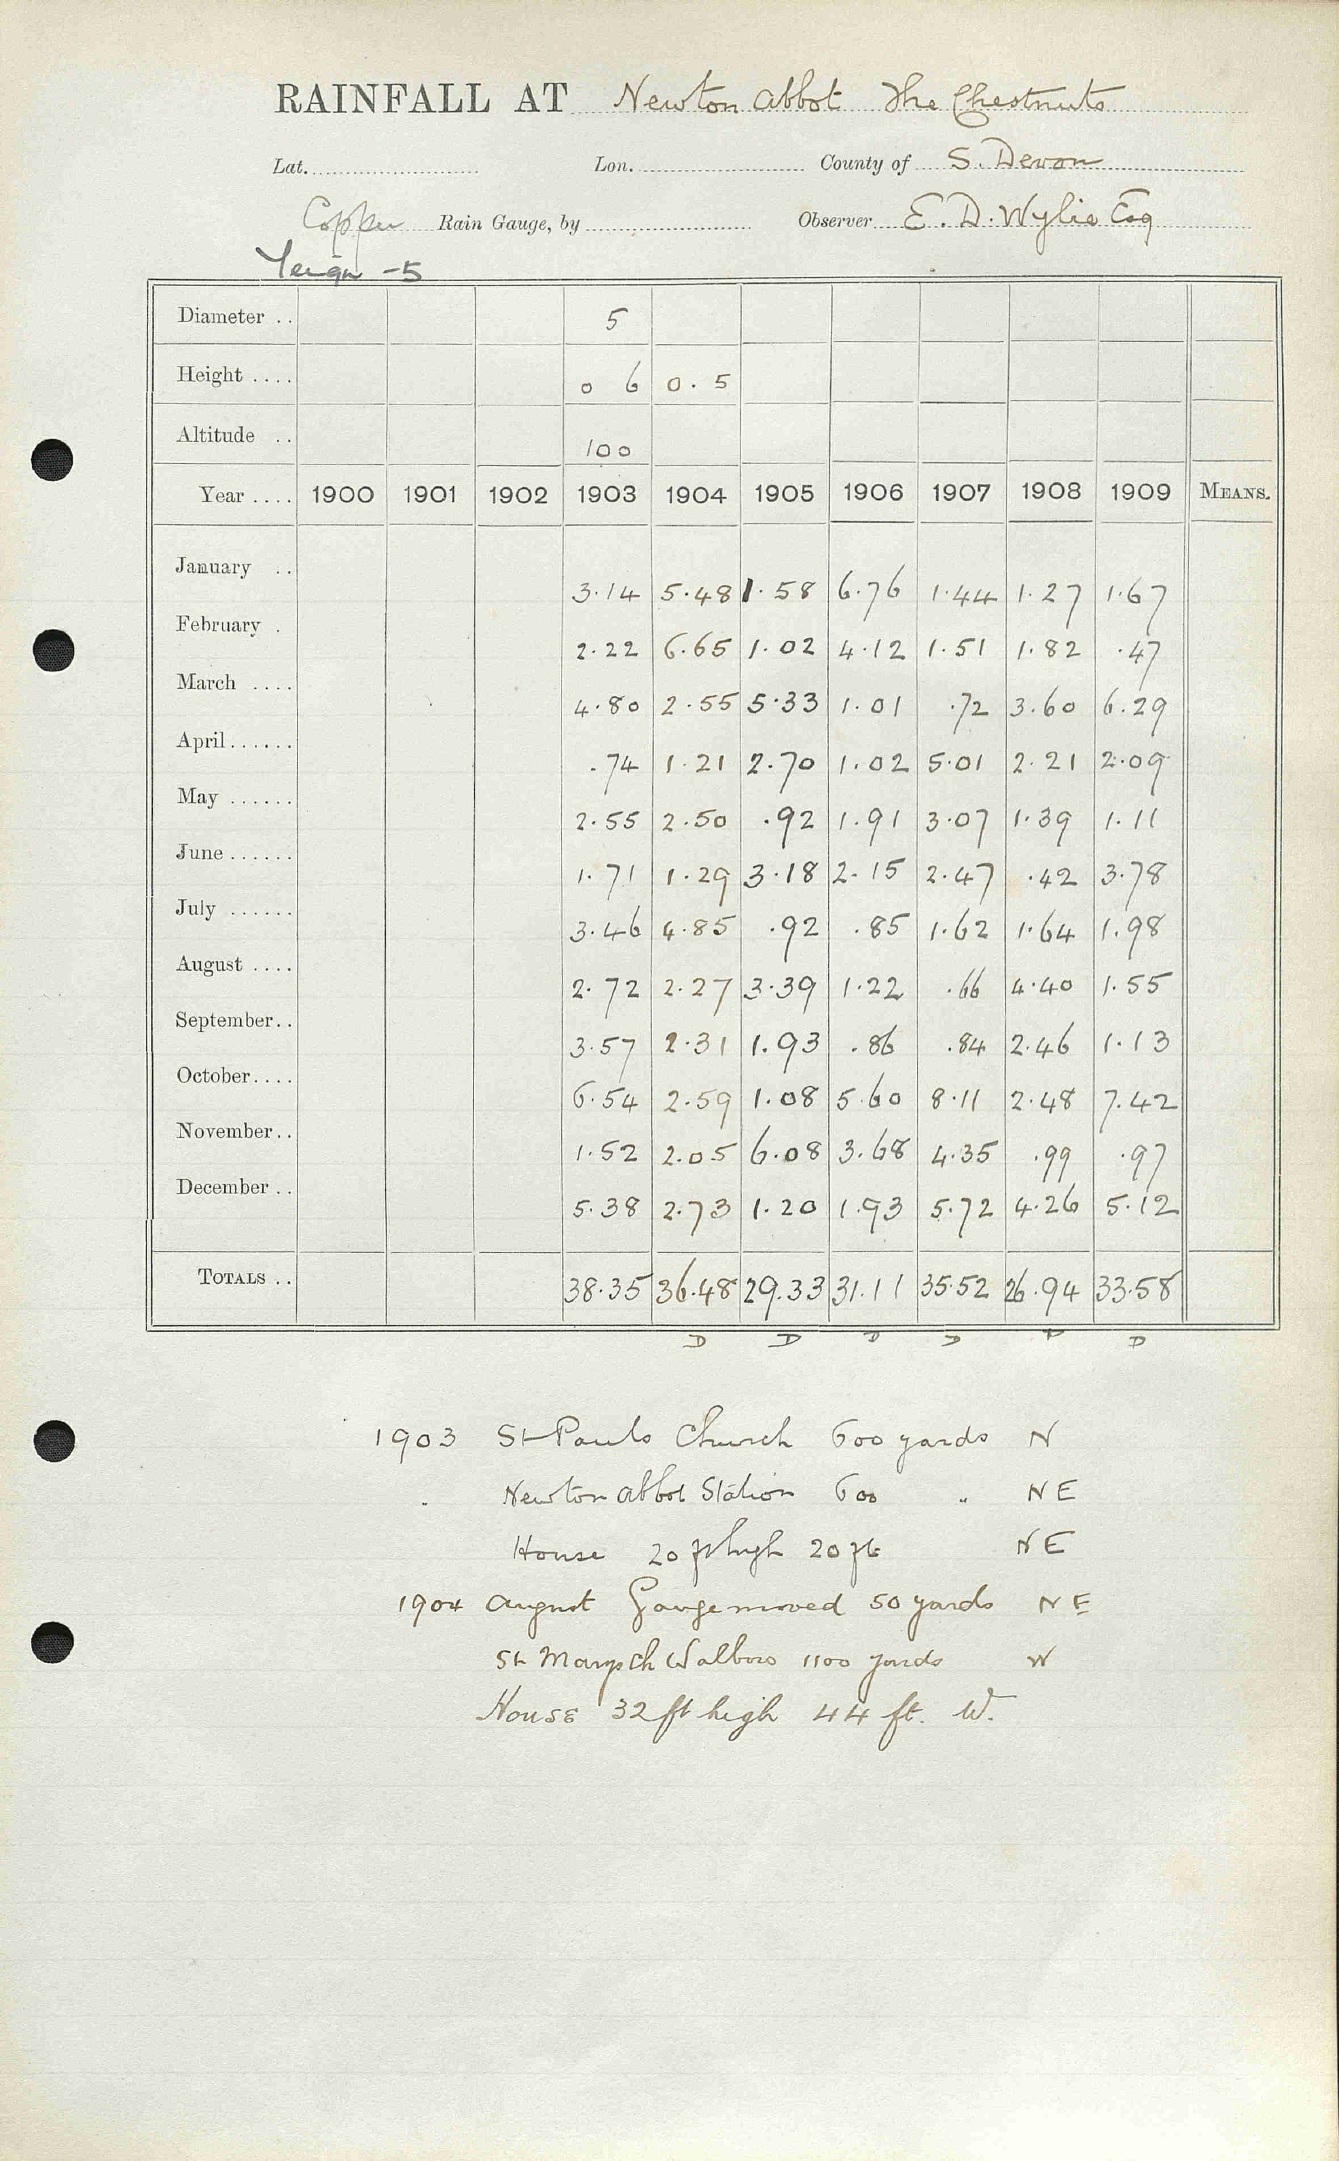 RAINFALL AT Newton Abbot The Chestnuts
Lat. Lon. County of S. Devon
Copper Rain Gauge, by Observer E. D. Wylie Esq
Teign -5
Diameter .. 5
Height .... 0 6 0.5
Altitude .. 100
Year .... 1900 1901 1902 1903 1904 1905 1906 1907 1908 1909 MEANS.
January .. 3.14 5.48 1.58 6.76 1.44 1.27 1.67
February . 2.22 6.65 1.02 4.12 1.51 1.82 .47
March .... 4.80 2.55 5.33 1.01 .72 3.60 6.29
April...... .74 1.21 2.70 1.02 5.01 2.21 2.09
May ...... 2.55 2.50 .92 1.91 3.07 1.39 1.11
June...... 1.71 1.29 3.18 2.15 2.47 .42 3.78
July ...... 3.46 4.85 .92 .85 1.62 1.64 1.98
August .... 2.72 2.27 3.39 1.22 .66 4.40 1.55
September.. 3.57 2.31 1.93 .86 .84 2.46 1.13
October.... 6.54 2.59 1.08 5.60 8.11 2.48 7.42
November.. 1.52 2.05 6.08 3.68 4.35 .99 .97
December .. 5.38 2.73 1.20 1.93 5.72 4.26 5.12
TOTALS .. 38.35 36.48 29.33 31.11 35.52 26.94 33.58
D D D D D D
1903 St Pauls Church 600 yards N
" Newton Abbot Station 600 " NE
House 20 ft high 20 ft NE
1904 August Gauge moved 50 yards NE
St Marys Ch Wolboro 1100 yards W
House 32 ft high 44 ft. W.